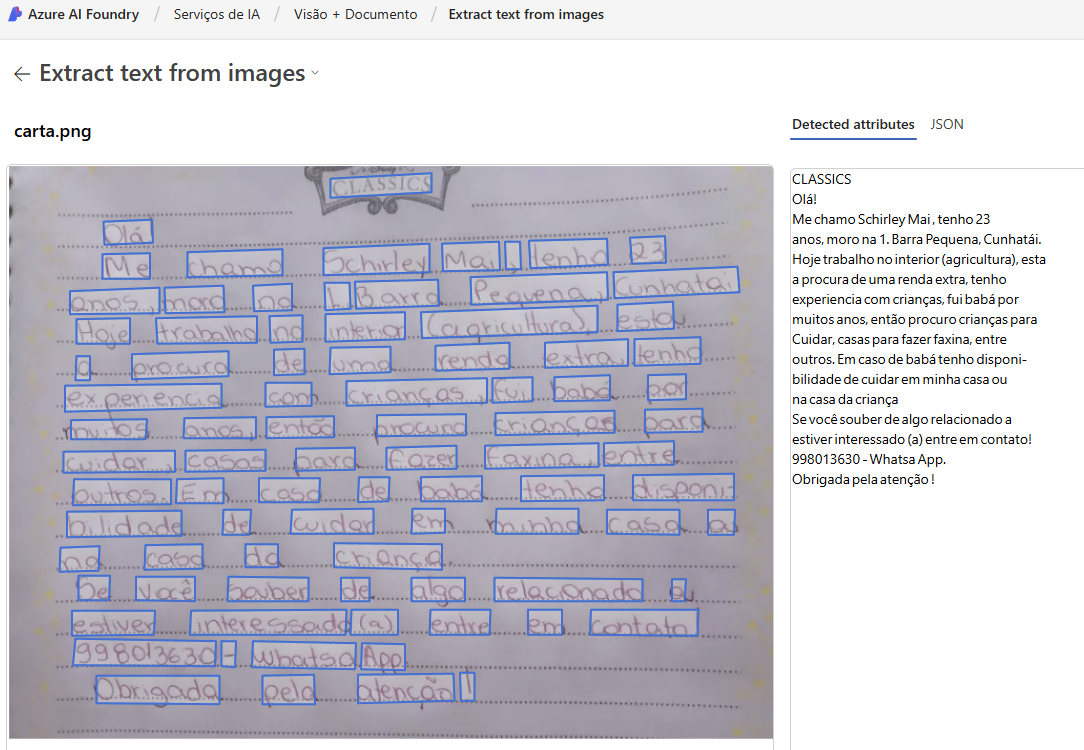 Azure AI Foundry / Serviços de IA / Visão + Documento / Extract text from images
← Extract text from images
carta.png
CLASSICS
Olá
Me chamo Schirley Mai, tenho 23
anos, moro na L. Barra Pequena, Cunhatai
Hoje trabalho no interior (agricultura), estou
a procura de uma renda extra, tenho
experiencia com crianças, fui babá por
muitos anos, então procuro crianças para
cuidar, casas para fazer faxina, entre
outros. Em caso de babá tenho disponi-
bilidade de cuidar em minha casa ou
na casa da criança.
Se você souber de algo relacionado ou
estiver interessado (a) entre em contato
998013630 - Whatsa App.
Obrigada pela atenção!
Detected attributes JSON
CLASSICS
Olá!
Me chamo Schirley Mai , tenho 23
anos, moro na 1. Barra Pequena, Cunhatái.
Hoje trabalho no interior (agricultura), esta
a procura de uma renda extra, tenho
experiencia com crianças, fui babá por
muitos anos, então procuro crianças para
Cuidar, casas para fazer faxina, entre
outros. Em caso de babá tenho disponi-
bilidade de cuidar em minha casa ou
na casa da criança
Se você souber de algo relacionado a
estiver interessado (a) entre em contato!
998013630 - Whatsa App.
Obrigada pela atenção !